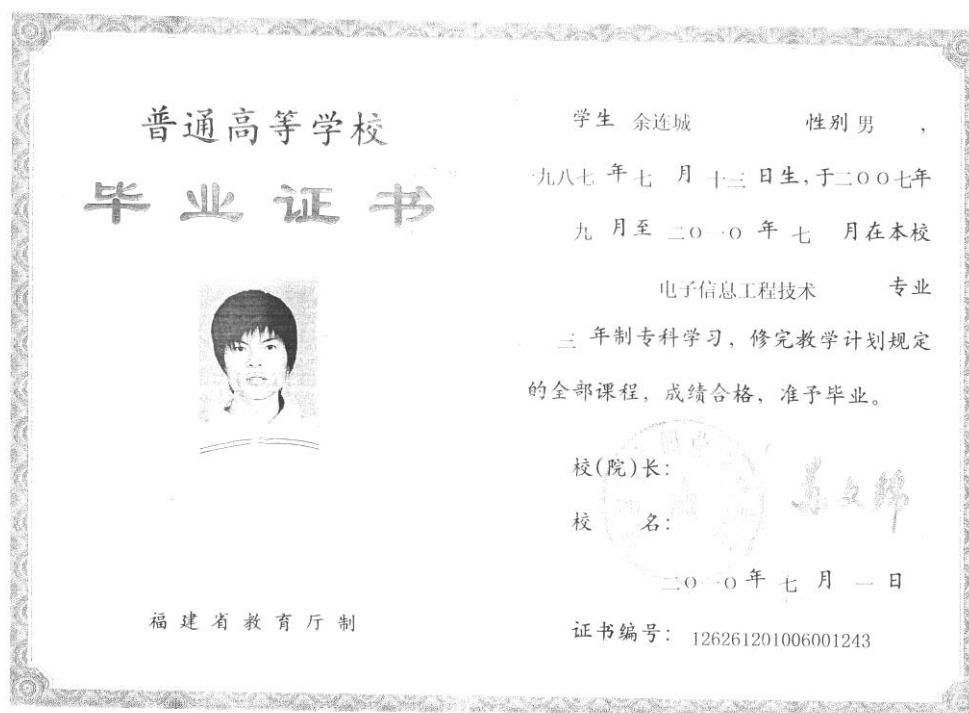 普通高等学校
毕业证书
福建省教育厅制
学生 余连城 性别 男 ，
一九八七 年 七 月 十三 日生，于二〇〇七年
九 月至 二〇一〇 年 七 月在本校
电子信息工程技术 专业
三 年制专科学习，修完教学计划规定
的全部课程，成绩合格，准予毕业。
校(院)长：
校 名：
二〇一〇 年 七 月 一 日
证书编号： 126261201006001243